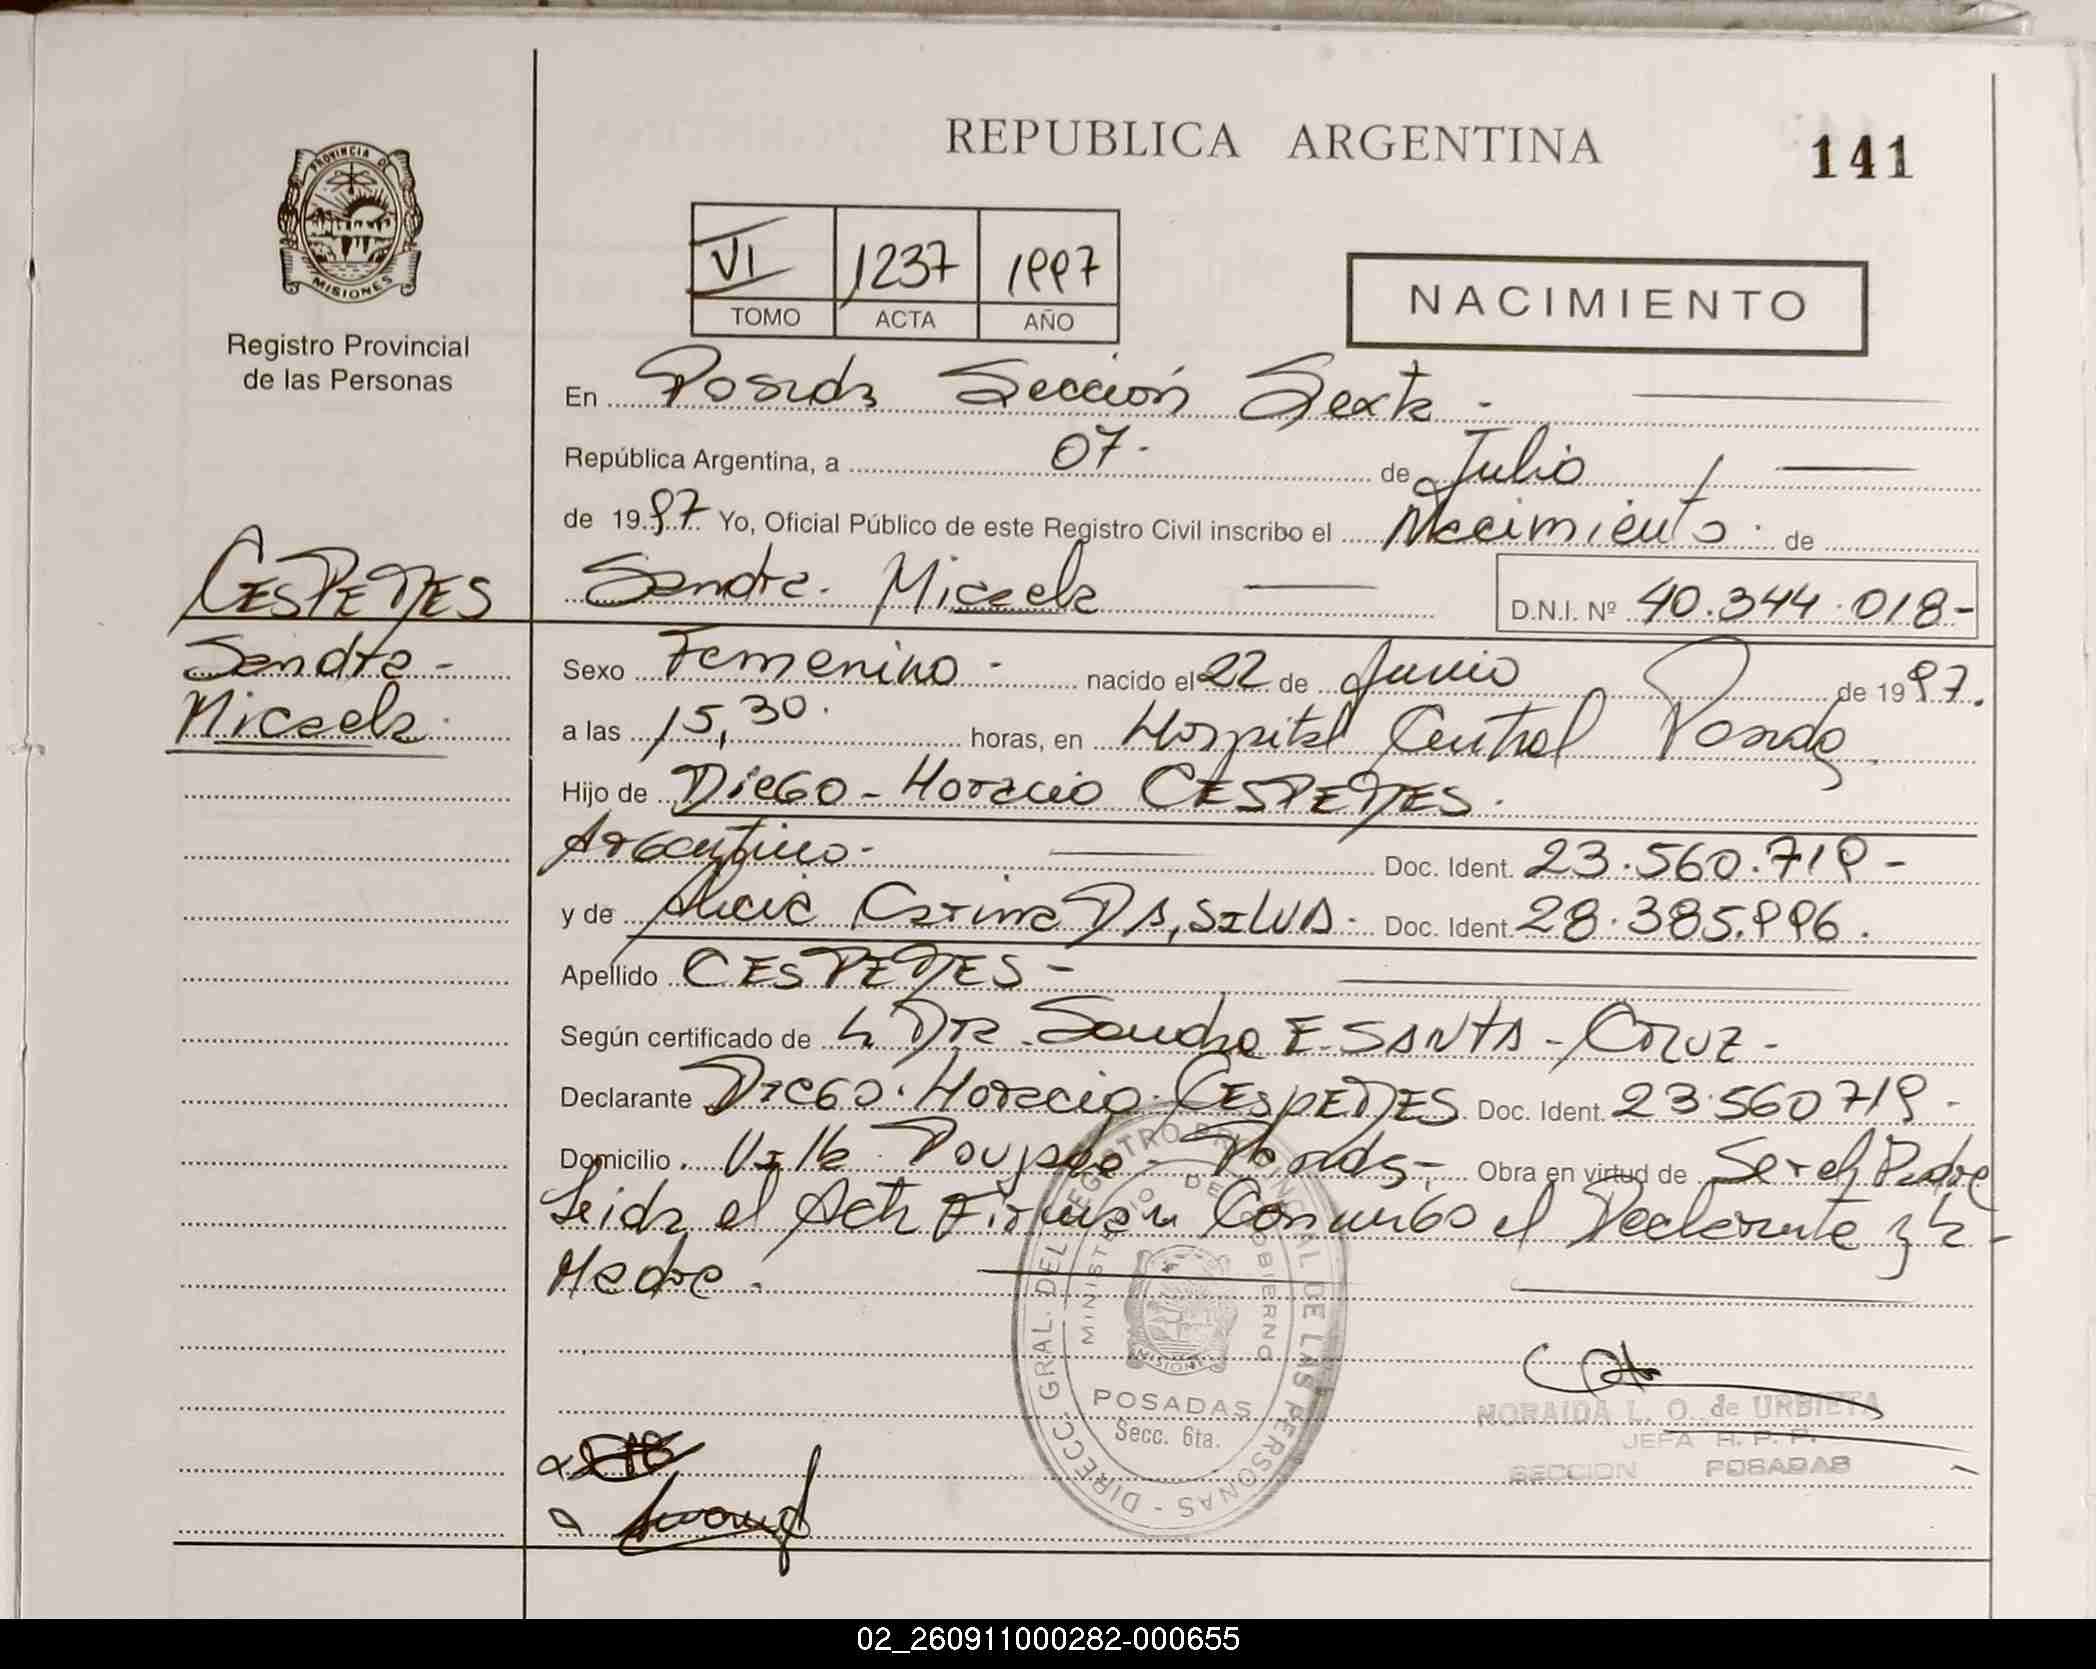 REPUBLICA ARGENTINA
141
PROVINCIA DE
MISIONES
Registro Provincial
de las Personas
VI 1237 1997
TOMO ACTA AÑO
NACIMIENTO
En Posadas Sección Sexta -
República Argentina, a 07- de Julio
de 1997 Yo, Oficial Público de este Registro Civil inscribo el Nacimiento - de
Sandra - Micaela D.N.I. Nº 40.344.018-
CESPEDES
Sandra -
Micaela -
Sexo Femenino - nacido el 22 de Junio de 1997.
a las 15,30. horas, en Hospital Central Posadas
Hijo de DIEGO - Horacio CESPEDES.
Argentino - Doc. Ident. 23.560.719-
y de Alicia Carina DA, SILVA - Doc. Ident. 28.385.996.
Apellido CESPEDES -
Según certificado de la Dra. Sandra E. SANTA - CRUZ -
Declarante Diego. Horacio. CESPEDES Doc. Ident. 23.560719-
Domicilio Villa Poujade - Posadas -, Obra en virtud de Ser el Padre
Leida el Acta Firman Conmigo el Declarante y la -
Madre -
DIRECC. GRAL. DEL REGISTRO PROVINCIAL DE LAS PERSONAS -
MINISTERIO DE GOBIERNO
MISIONES
POSADAS
Secc. 6ta.
NORAIDA L. O. de URBIETA
JEFA R. P. P.
SECCION POSADAS
02_260911000282-000655